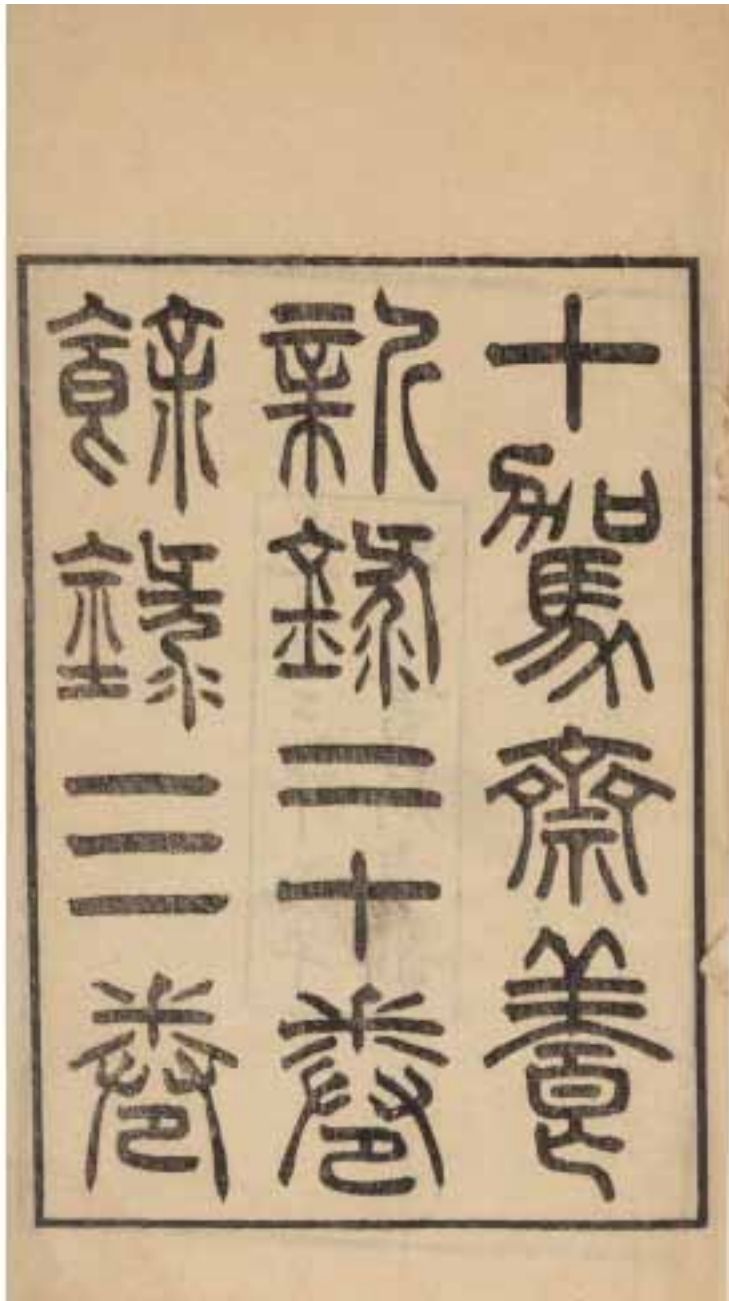 十駕齋養
新錄二十卷
餘錄三卷